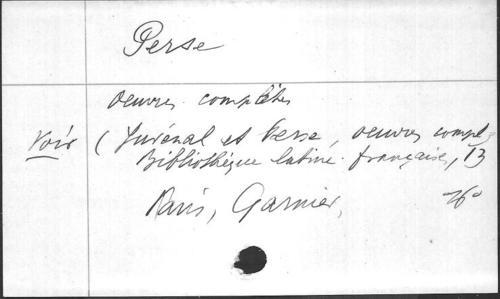 Perse
oeuvres complètes
Voir (Juvénal et Perse, oeuvres compl,
Bibliothèque latine-française, 13
Paris, Garnier,